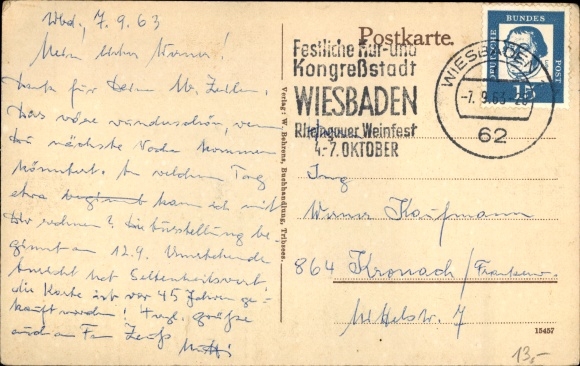 Wbd., 7.9.63
Mein lieber Werner!
Dank für Deine lb. Zeilen.
Das wäre wunderschön, wenn
Du nächste Woche kommen
könntest. An welchem Tag
etwa kann ich mit
Dir rechnen? Die Ausstellung be
ginnt am 12.9. Umstehende
Ansicht hat Seltenheitswert,
die Karte ist vor 45 Jahren ge-
kauft worden! Hzl. Grüße
auch an Fam
Mutti
Verlag: W. Behrens, Buchhandlung, Tribsees.
Postkarte.
Festliche Kur- und
Kongreßstadt
WIESBADEN
Rheingauer Weinfest
4.-7. OKTOBER
WIESBADEN
-7.9.63
62
DEUTSCHE BUNDES POST
15
Ing
Werner Kaufmann
864 Kronach/Franken
7
15457
13,-